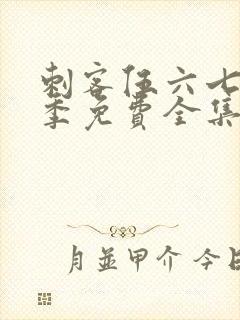 刺客伍六七
季免费全集
月並甲介 今日